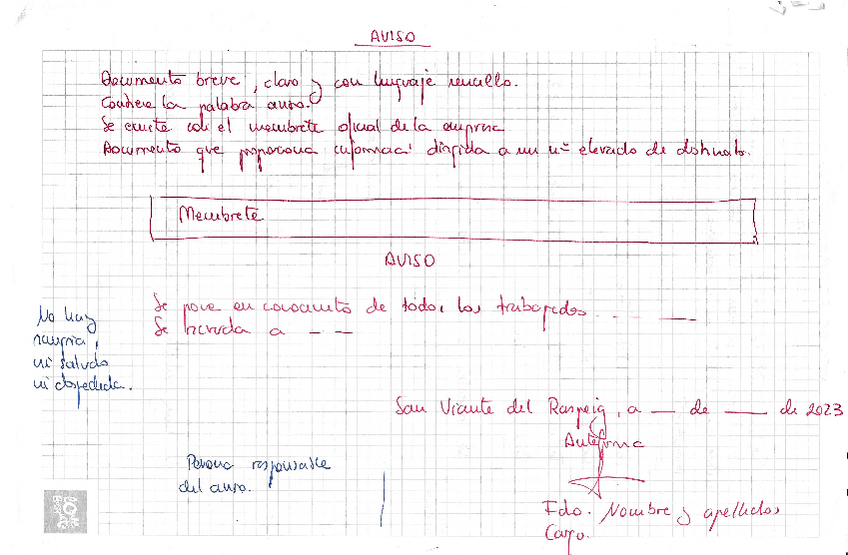 AVISO
Documento breve, claro y con lenguaje sencillo.
Contiene la palabra aviso.
Se emite con el membrete oficial de la empresa
Documento que proporciona informaci' dirigida a un nº elevado de destinat.
Membrete
AVISO
Se pone en conocimiento de todos los trabajadores. - - - —
Se recuerda a — —
No hay
ni saludo
ni despedida.
San Vicente del Raspeig, a — de — de 2023
Antefirma
Persona responsable
del aviso.
Fdo. Nombre y apellidos
Cargo.